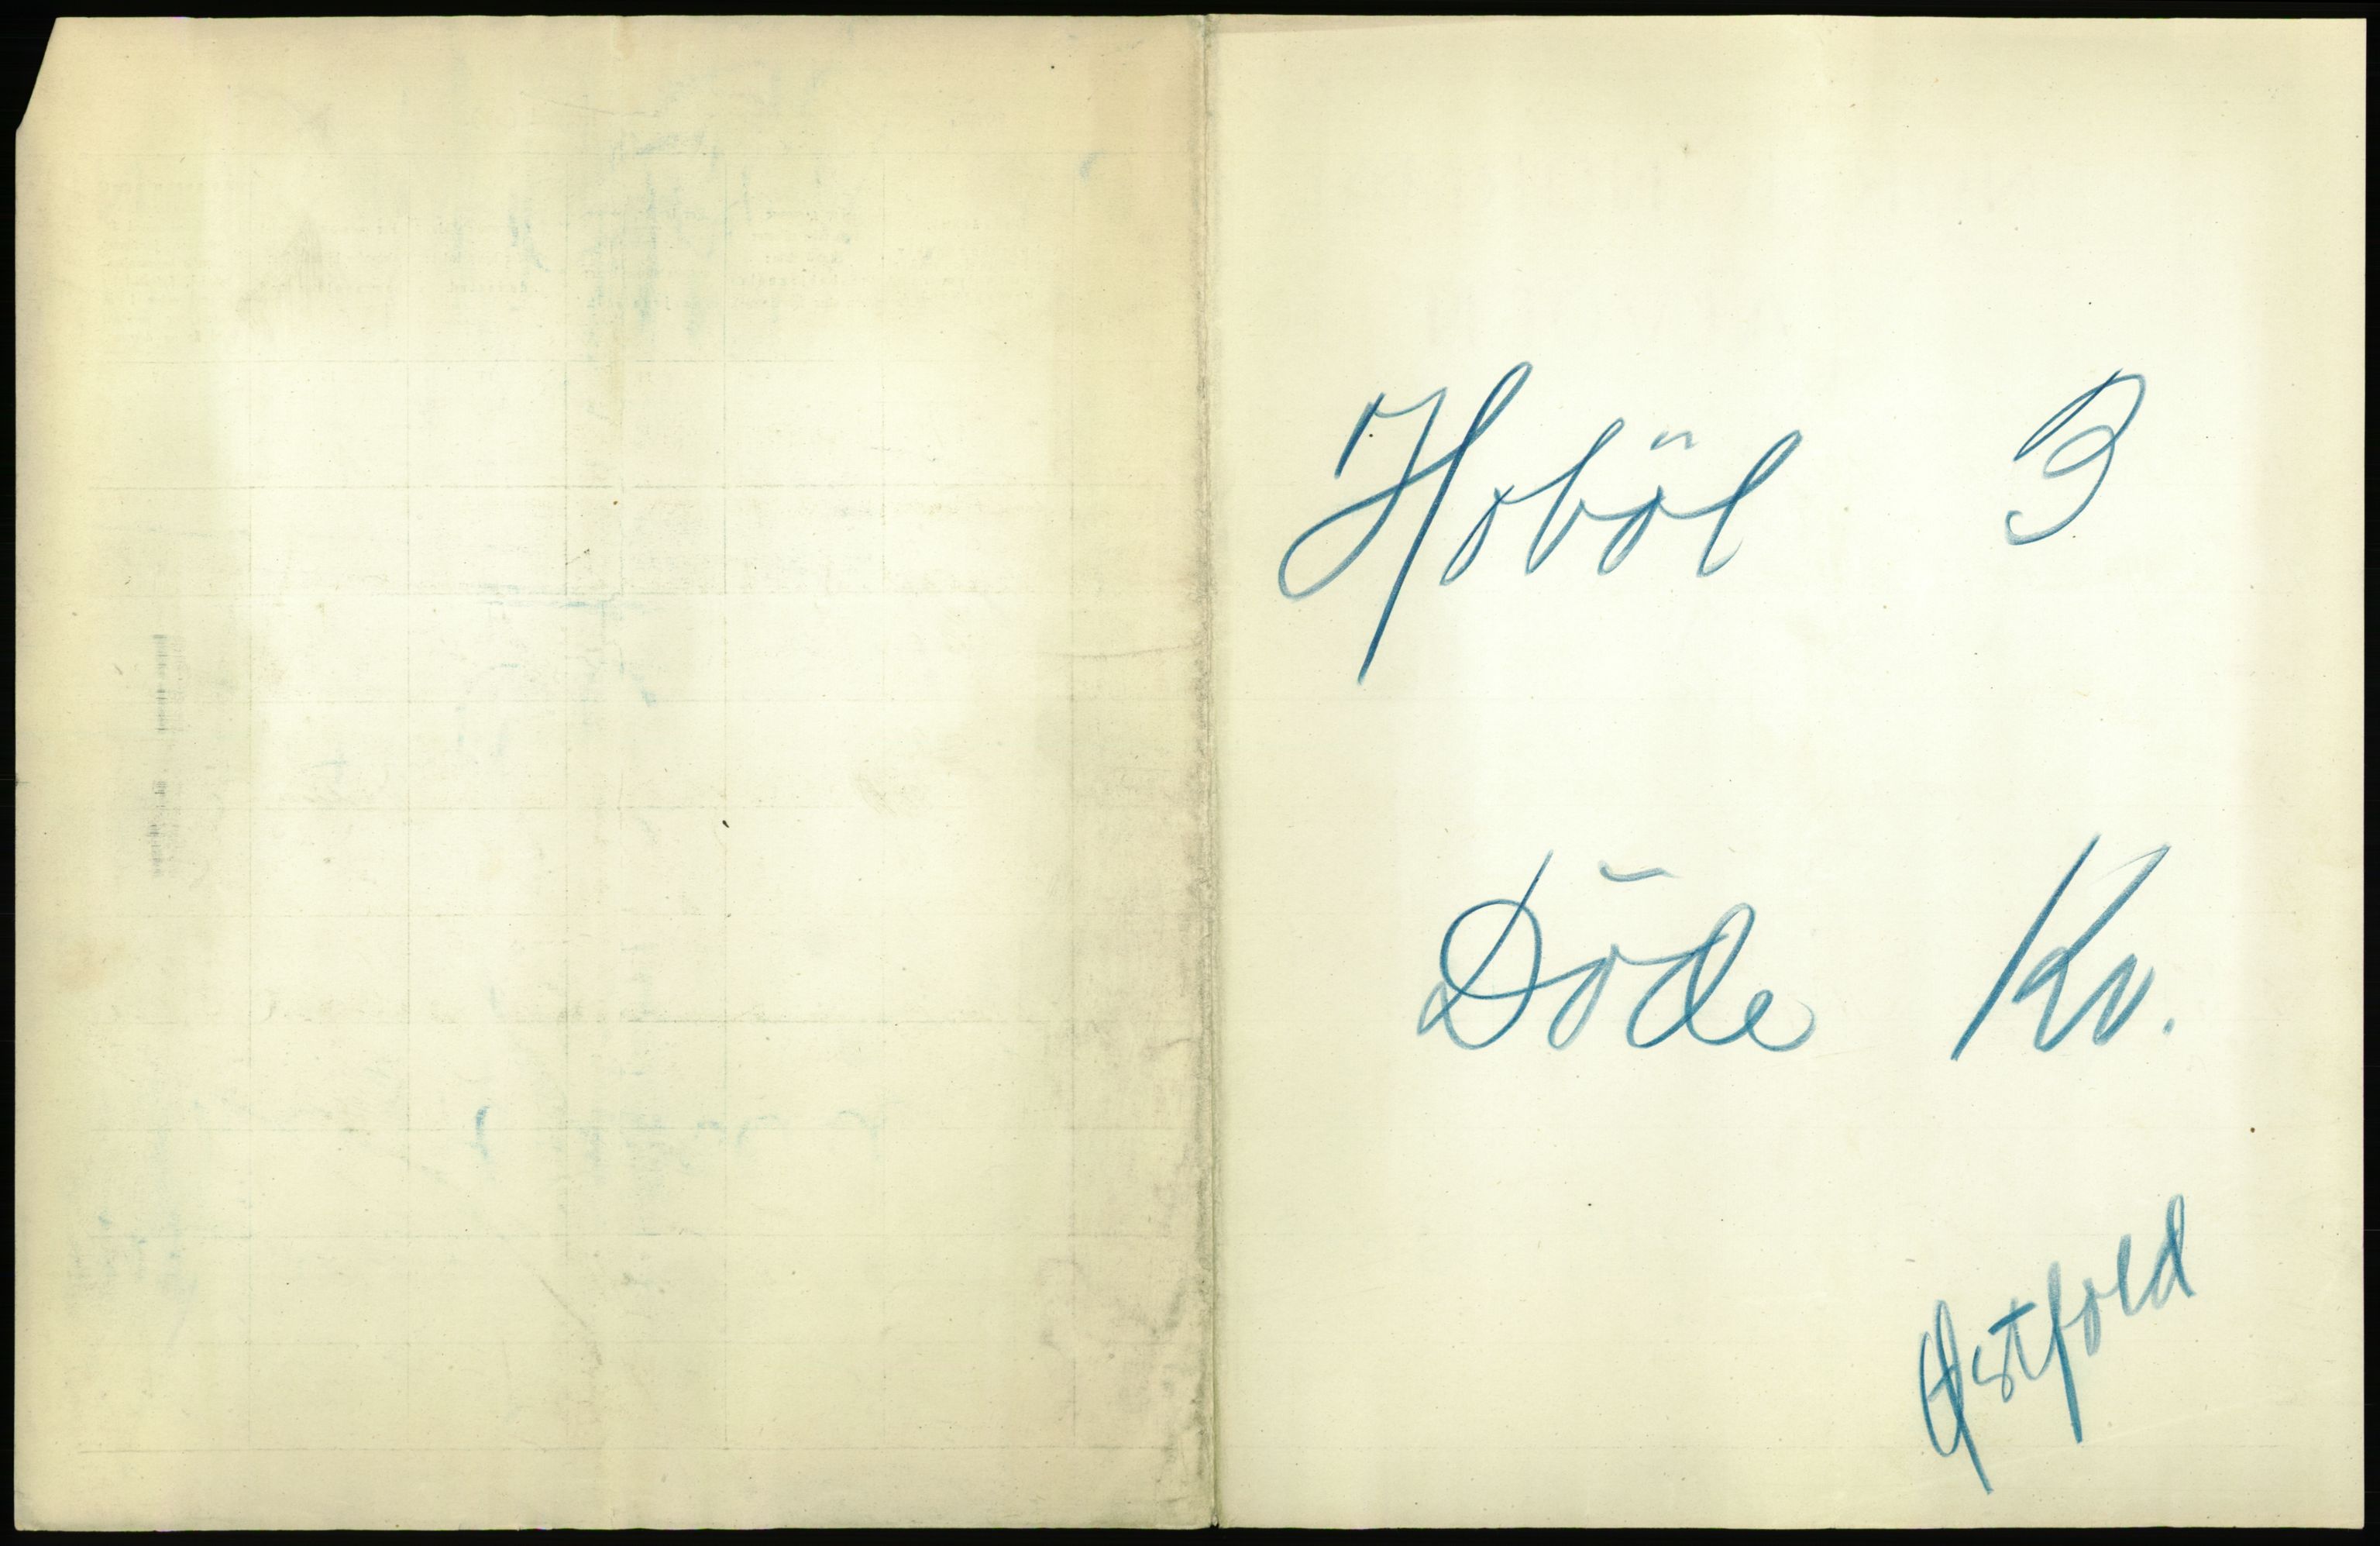 Hoböl 3
Döde Kv.
Østfold